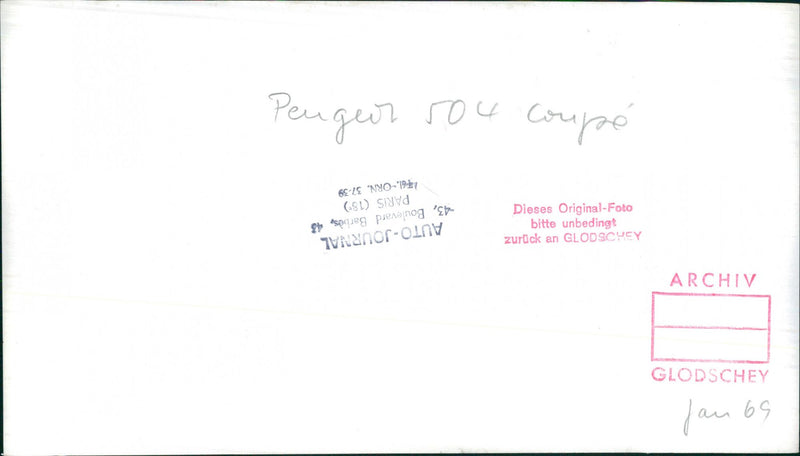 Peugeot 504 Coupé
AUTO-JOURNAL
43, Boulevard Barbès, 43
PARIS (18e)
Tél.-ORN. 37-39
Dieses Original-Foto
bitte unbedingt
zurück an GLODSCHEY
ARCHIV
GLODSCHEY
Jan 69